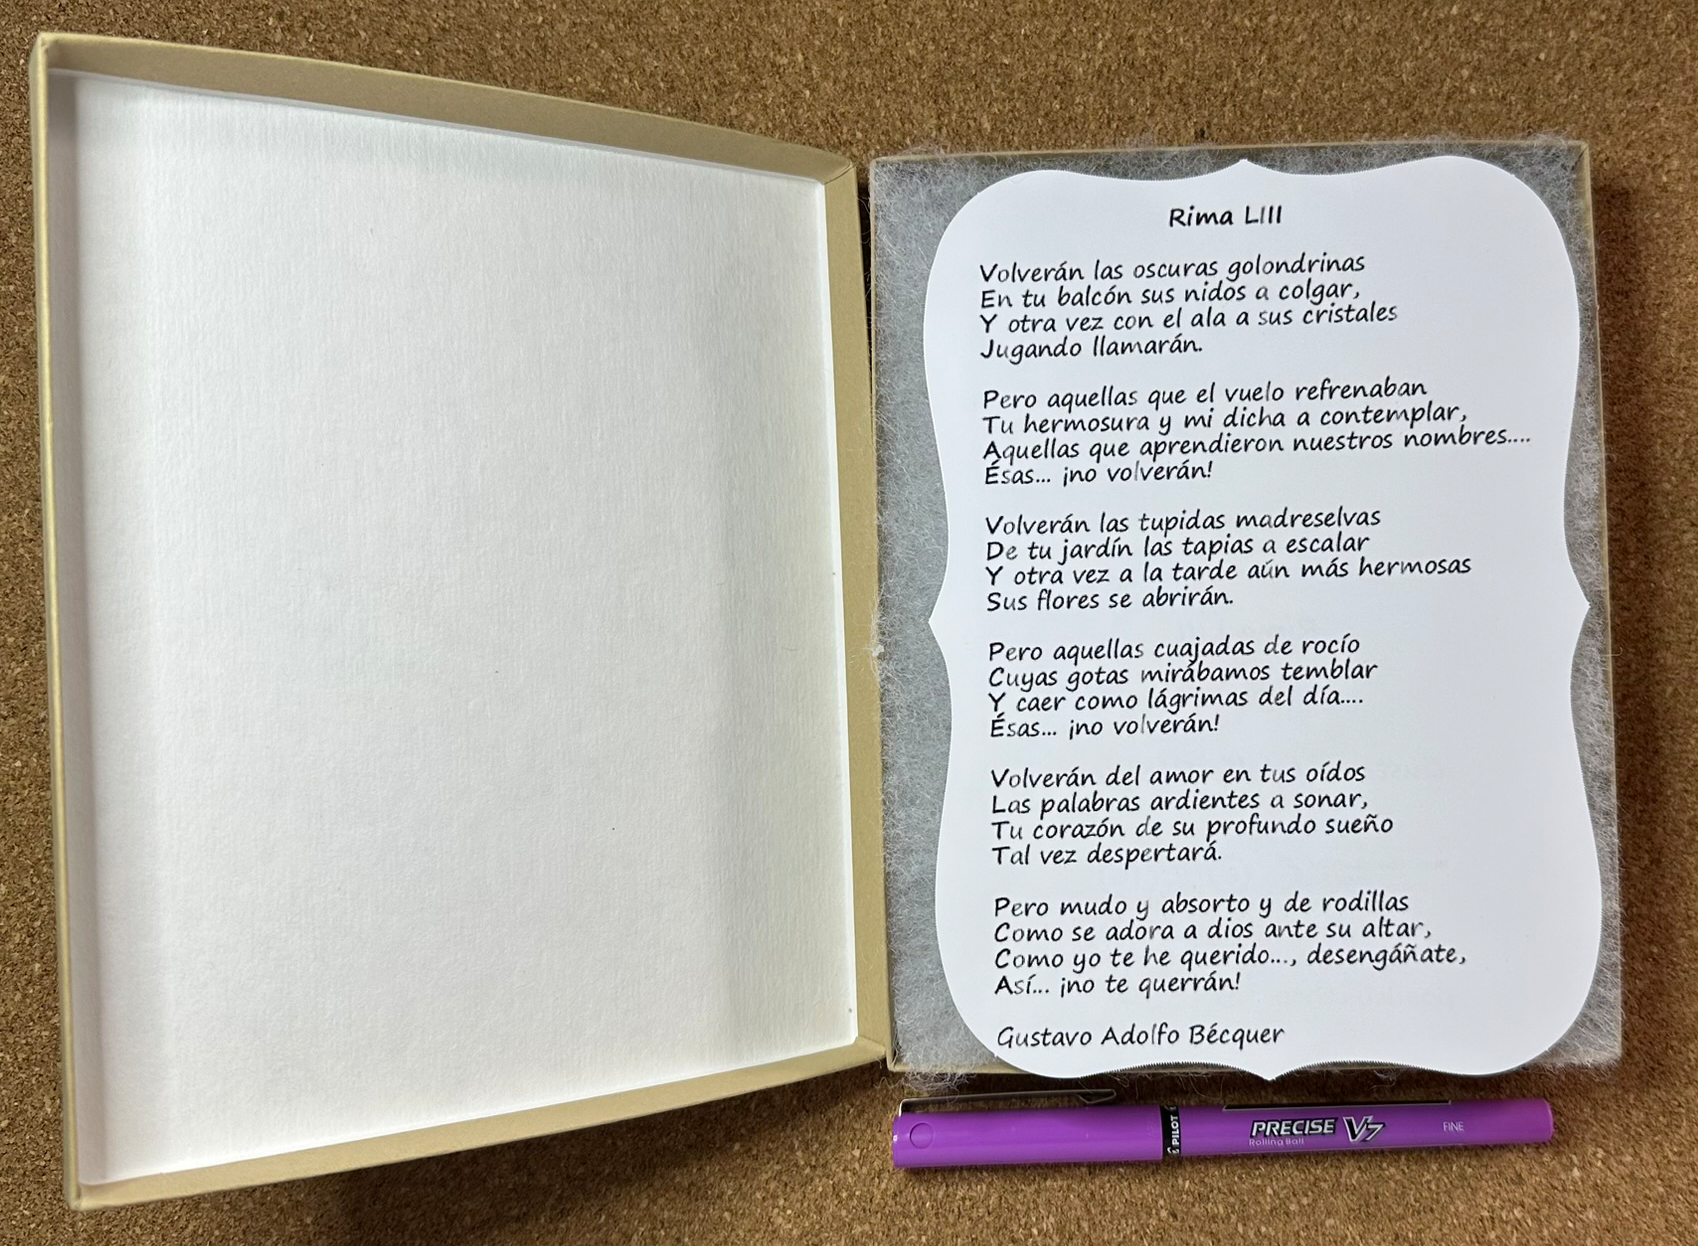 Rima LIII
Volverán las oscuras golondrinas
En tu balcón sus nidos a colgar,
Y otra vez con el ala a sus cristales
Jugando llamarán.
Pero aquellas que el vuelo refrenaban
Tu hermosura y mi dicha a contemplar,
Aquellas que aprendieron nuestros nombres....
Ésas... ¡no volverán!
Volverán las tupidas madreselvas
De tu jardín las tapias a escalar
Y otra vez a la tarde aún más hermosas
Sus flores se abrirán.
Pero aquellas cuajadas de rocío
Cuyas gotas mirábamos temblar
Y caer como lágrimas del día....
Ésas... ¡no volverán!
Volverán del amor en tus oídos
Las palabras ardientes a sonar,
Tu corazón de su profundo sueño
Tal vez despertará.
Pero mudo y absorto y de rodillas
Como se adora a dios ante su altar,
Como yo te he querido..., desengáñate,
Así... ¡no te querrán!
Gustavo Adolfo Bécquer
PILOT
PRECISE V7
Rolling Ball
FINE